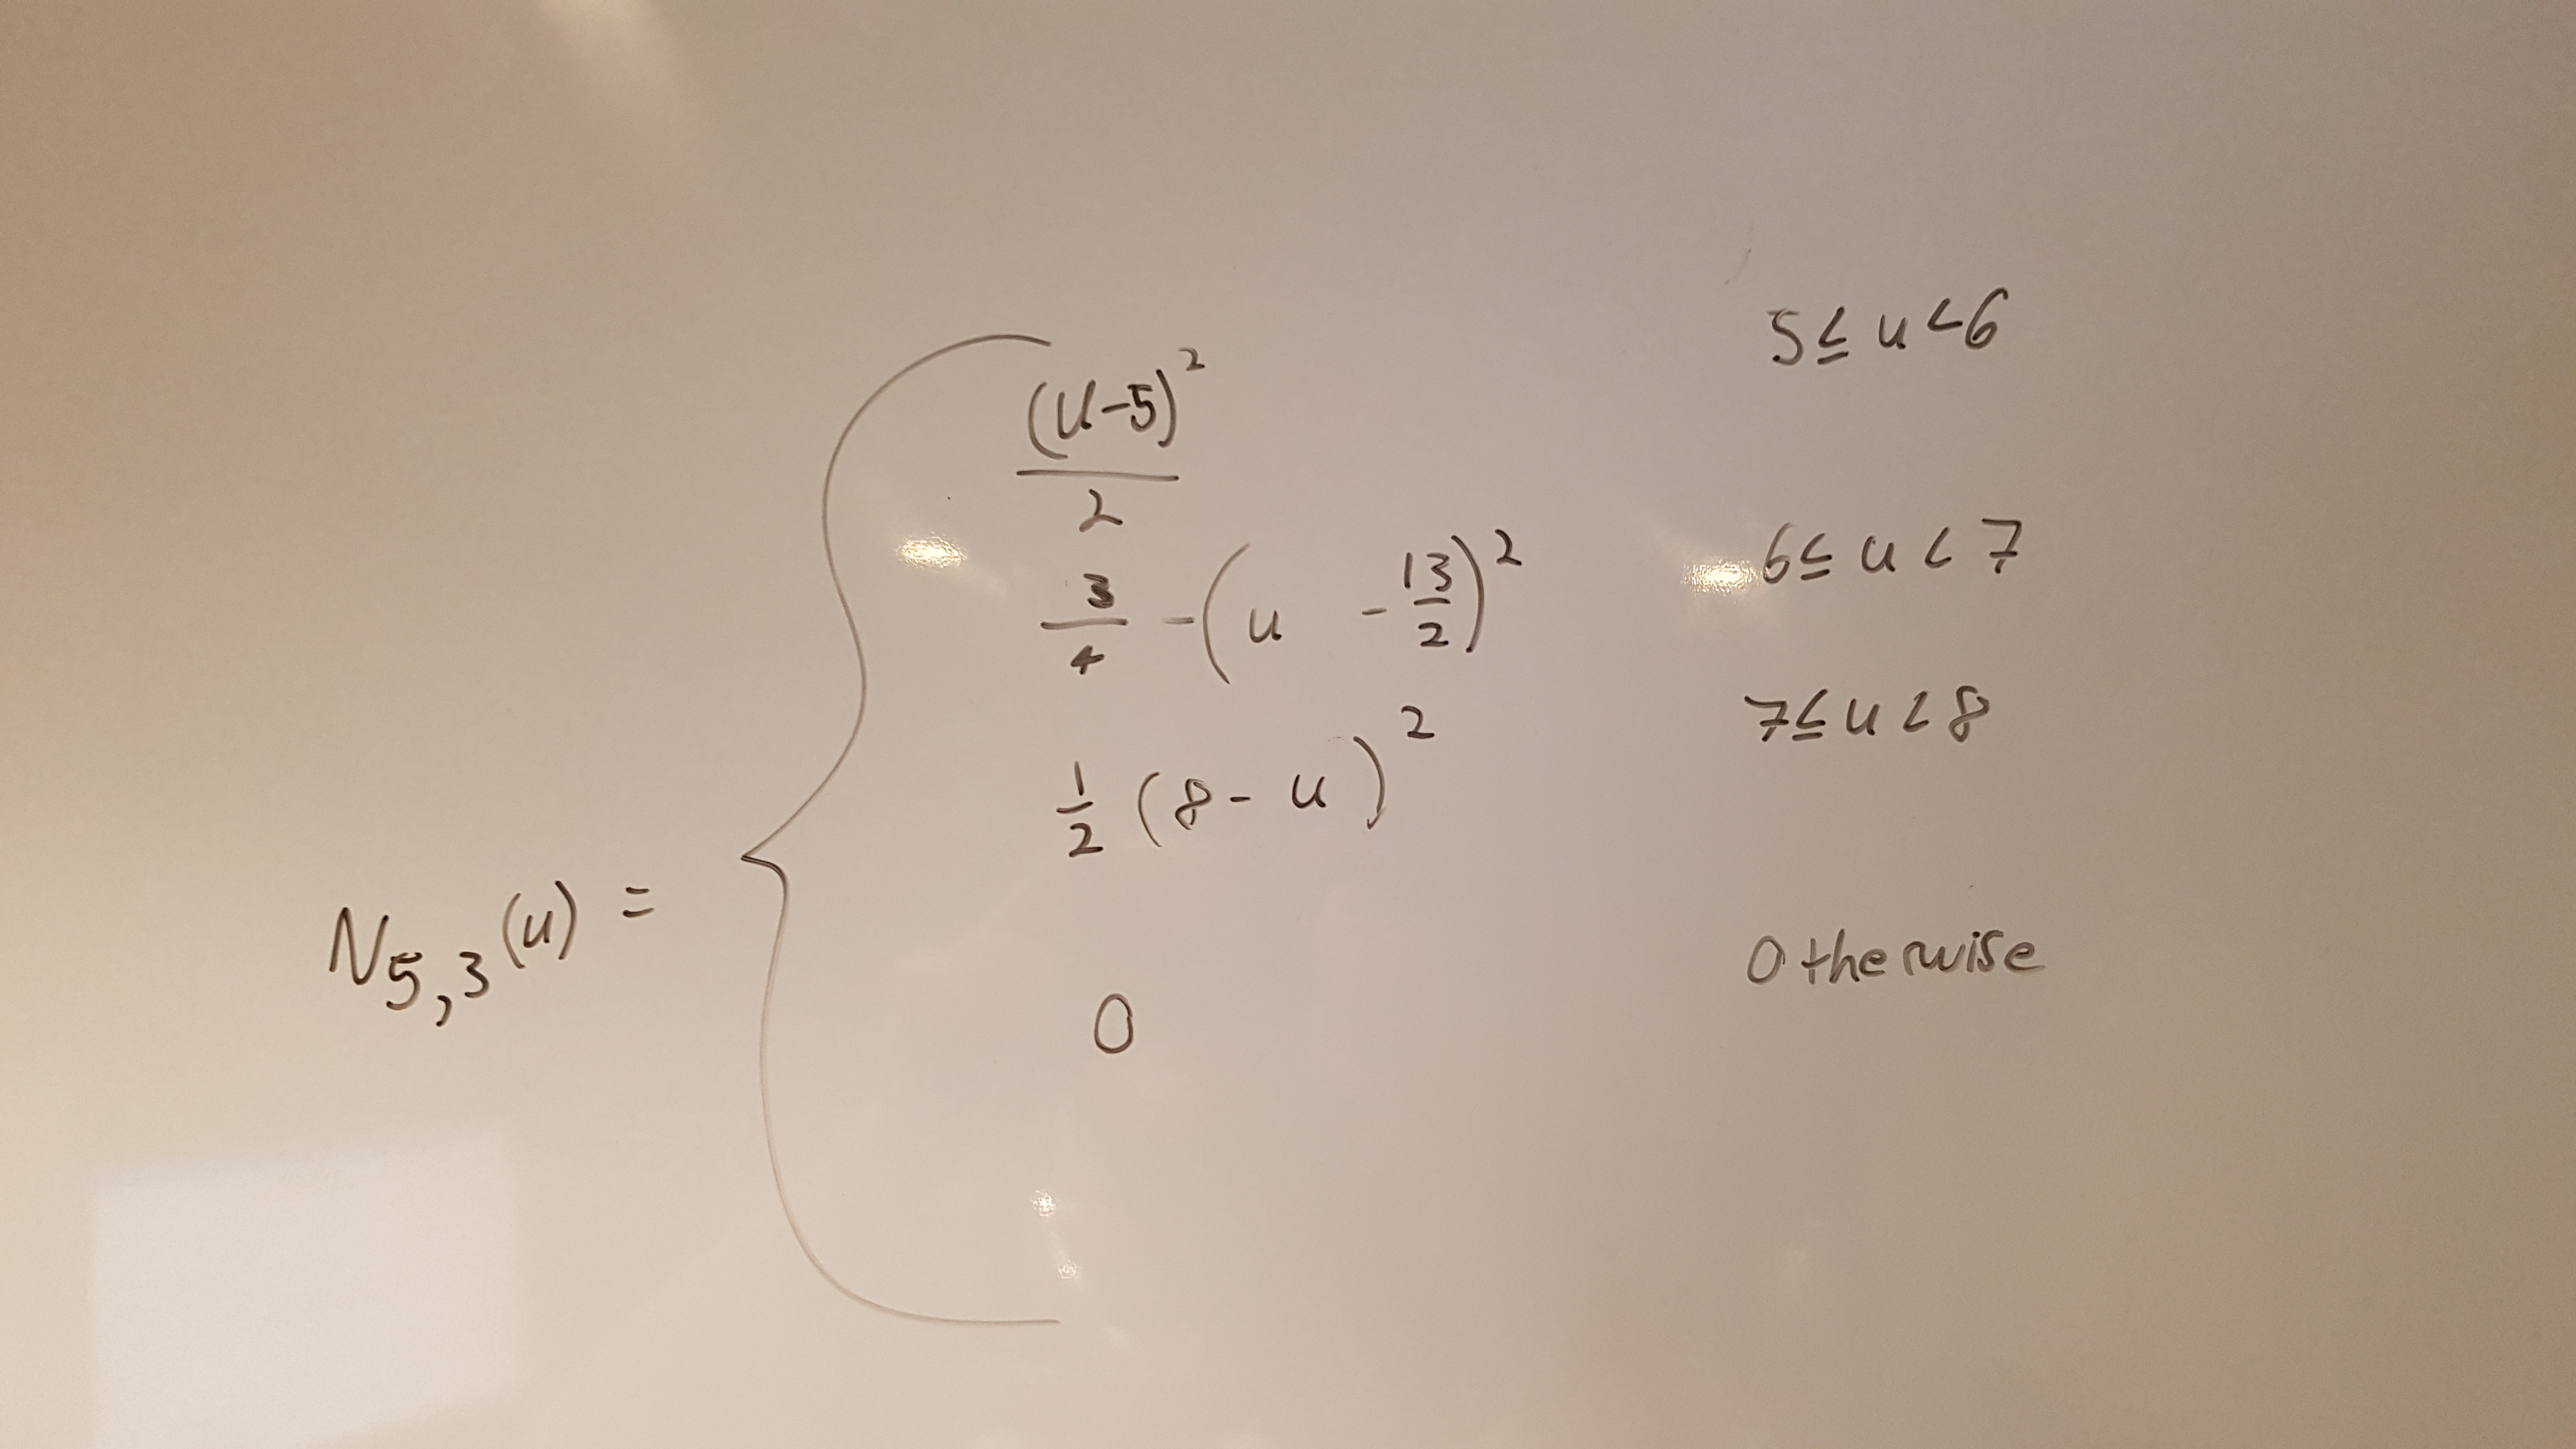 N₅,₃(u) =
(u-5)² / 2    5 ≤ u < 6
3/4 - (u - 13/2)²    6 ≤ u < 7
1/2 (8 - u)²    7 ≤ u < 8
0    Otherwise